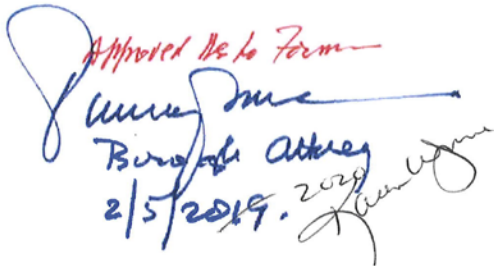 Approved As to Form
Borough Attorney
2/5/2019. 2020
Karen Wynne